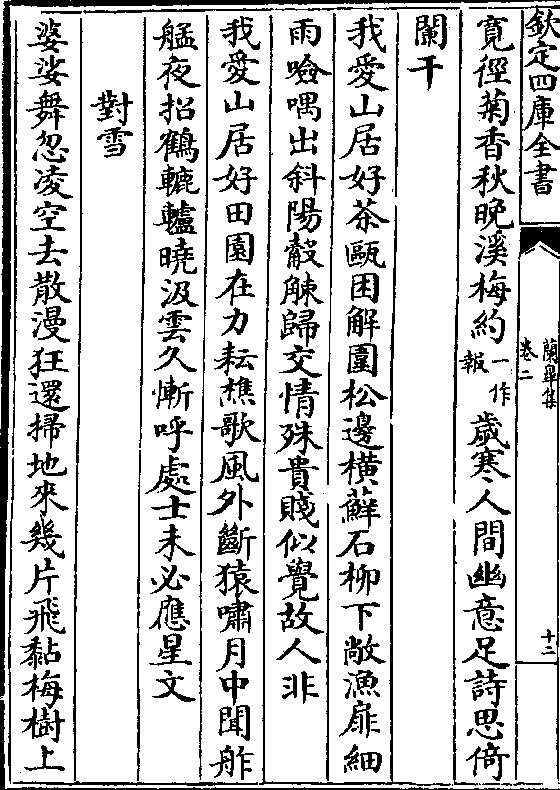 欽定四庫全書
蘭皋集
卷二
十二
寛徑菊香秋晚溪梅約一作報歲寒人間幽意足詩思倚
闌干
我愛山居好茶甌困解圍松邊横蘚石栁下敞漁扉細
雨噞喁出斜陽觳觫歸交情殊貴賤似覺故人非
我愛山居好田園在力耘樵歌風外斷猿嘯月中聞舴
艋夜招鶴轆轤曉汲雲久慚呼處士未必應星文
對雪
婆娑舞忽凌空去散漫狂還掃地來幾片飛黏梅樹上